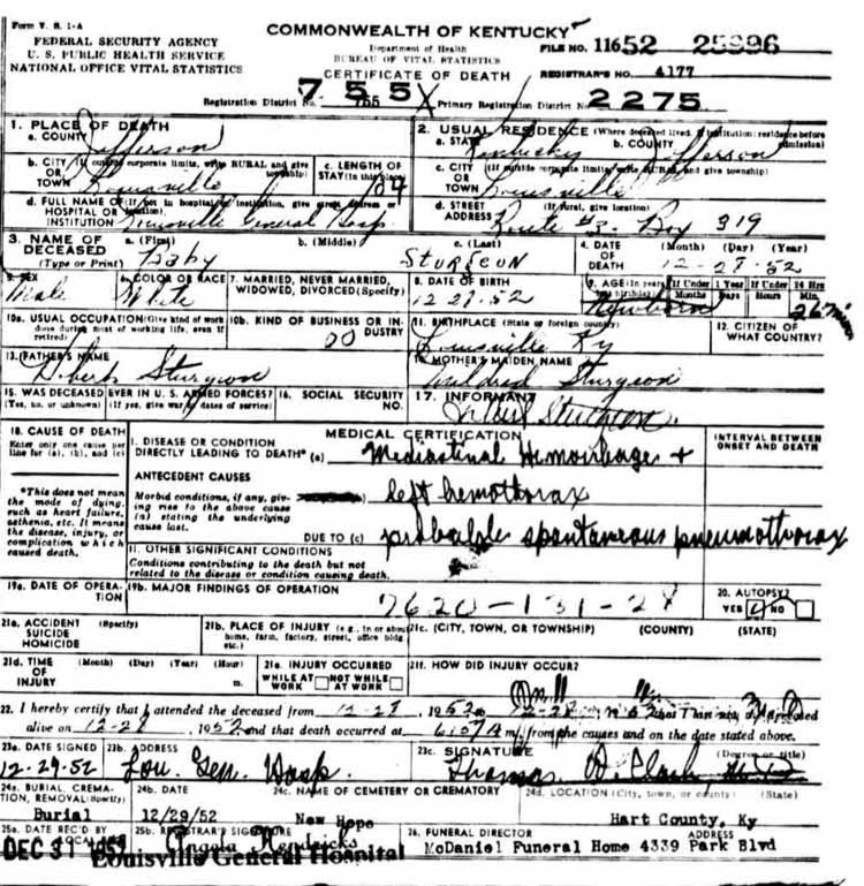 Form V. S. 1-A
FEDERAL SECURITY AGENCY
U. S. PUBLIC HEALTH SERVICE
NATIONAL OFFICE VITAL STATISTICS
COMMONWEALTH OF KENTUCKY
Department of Health
BUREAU OF VITAL STATISTICS
CERTIFICATE OF DEATH
FILE NO. 11652 25996
REGISTRAR'S NO. 4177
Registration District No. 755 755X Primary Registration District No. 2275
1. PLACE OF DEATH
a. COUNTY Jefferson
2. USUAL RESIDENCE (Where deceased lived. If institution: residence before admission)
a. STATE Kentucky b. COUNTY Jefferson
b. CITY OR TOWN (If outside corporate limits, write RURAL and give township) Louisville
c. LENGTH OF STAY (in this place)
c. CITY OR TOWN (If outside corporate limits, write RURAL and give township) Louisville
d. FULL NAME OF HOSPITAL OR INSTITUTION (If not in hospital or institution, give street address or location) Louisville General Hosp.
d. STREET ADDRESS (If rural, give location) Route #3. Box 319
3. NAME OF DECEASED (Type or Print)
a. (First) Baby b. (Middle) c. (Last) STURGEON
4. DATE OF DEATH (Month) (Day) (Year) 12-28-52
5. SEX Male
6. COLOR OR RACE White
7. MARRIED, NEVER MARRIED, WIDOWED, DIVORCED (Specify)
8. DATE OF BIRTH 12-28-52
9. AGE (In years last birthday) Newborn
If Under 1 Year Months Days
If Under 24 Hrs Hours Min.
10a. USUAL OCCUPATION (Give kind of work done during most of working life, even if retired)
10b. KIND OF BUSINESS OR INDUSTRY
11. BIRTHPLACE (State or foreign country) Louisville Ky
12. CITIZEN OF WHAT COUNTRY?
13. FATHER'S NAME Sturgeon
14. MOTHER'S MAIDEN NAME Mildred Sturgeon
15. WAS DECEASED EVER IN U. S. ARMED FORCES? (Yes, no, or unknown) (If yes, give war or dates of service)
16. SOCIAL SECURITY NO.
17. INFORMANT Sturgeon
18. CAUSE OF DEATH
Enter only one cause per line for (a), (b), and (c)
MEDICAL CERTIFICATION
INTERVAL BETWEEN ONSET AND DEATH
I. DISEASE OR CONDITION DIRECTLY LEADING TO DEATH* (a) Mediastinal Hemorrhage +
*This does not mean the mode of dying, such as heart failure, asthenia, etc. It means the disease, injury, or complication which caused death.
ANTECEDENT CAUSES
Morbid conditions, if any, giving rise to the above cause (a) stating the underlying cause last.
left hemothorax
DUE TO (c) probable spontaneous pneumothorax
II. OTHER SIGNIFICANT CONDITIONS
Conditions contributing to the death but not related to the disease or condition causing death.
19a. DATE OF OPERATION
19b. MAJOR FINDINGS OF OPERATION
7620-131-28
20. AUTOPSY?
YES NO
21a. ACCIDENT SUICIDE HOMICIDE (Specify)
21b. PLACE OF INJURY (e.g., in or about home, farm, factory, street, office bldg., etc.)
21c. (CITY, TOWN, OR TOWNSHIP) (COUNTY) (STATE)
21d. TIME OF INJURY (Month) (Day) (Year) (Hour) m.
21e. INJURY OCCURRED
WHILE AT WORK NOT WHILE AT WORK
21f. HOW DID INJURY OCCUR?
22. I hereby certify that I attended the deceased from 12-28, 1952, to 12-28, 1952, that I last saw the deceased
alive on 12-28, 1952 and that death occurred at m., from the causes and on the date stated above.
23a. DATE SIGNED 12-29-52
23b. ADDRESS Lou. Gen. Hosp.
23c. SIGNATURE (Degree or title) Thomas
24a. BURIAL, CREMATION, REMOVAL (Specify) Burial
24b. DATE 12/29/52
24c. NAME OF CEMETERY OR CREMATORY New Hope
24d. LOCATION (City, town, or county) (State) Hart County, Ky
25a. DATE REC'D BY LOCAL REG. DEC 31 1952
25b. REGISTRAR'S SIGNATURE Angela Hendricks
Louisville General Hospital
26. FUNERAL DIRECTOR ADDRESS
McDaniel Funeral Home 4339 Park Blvd